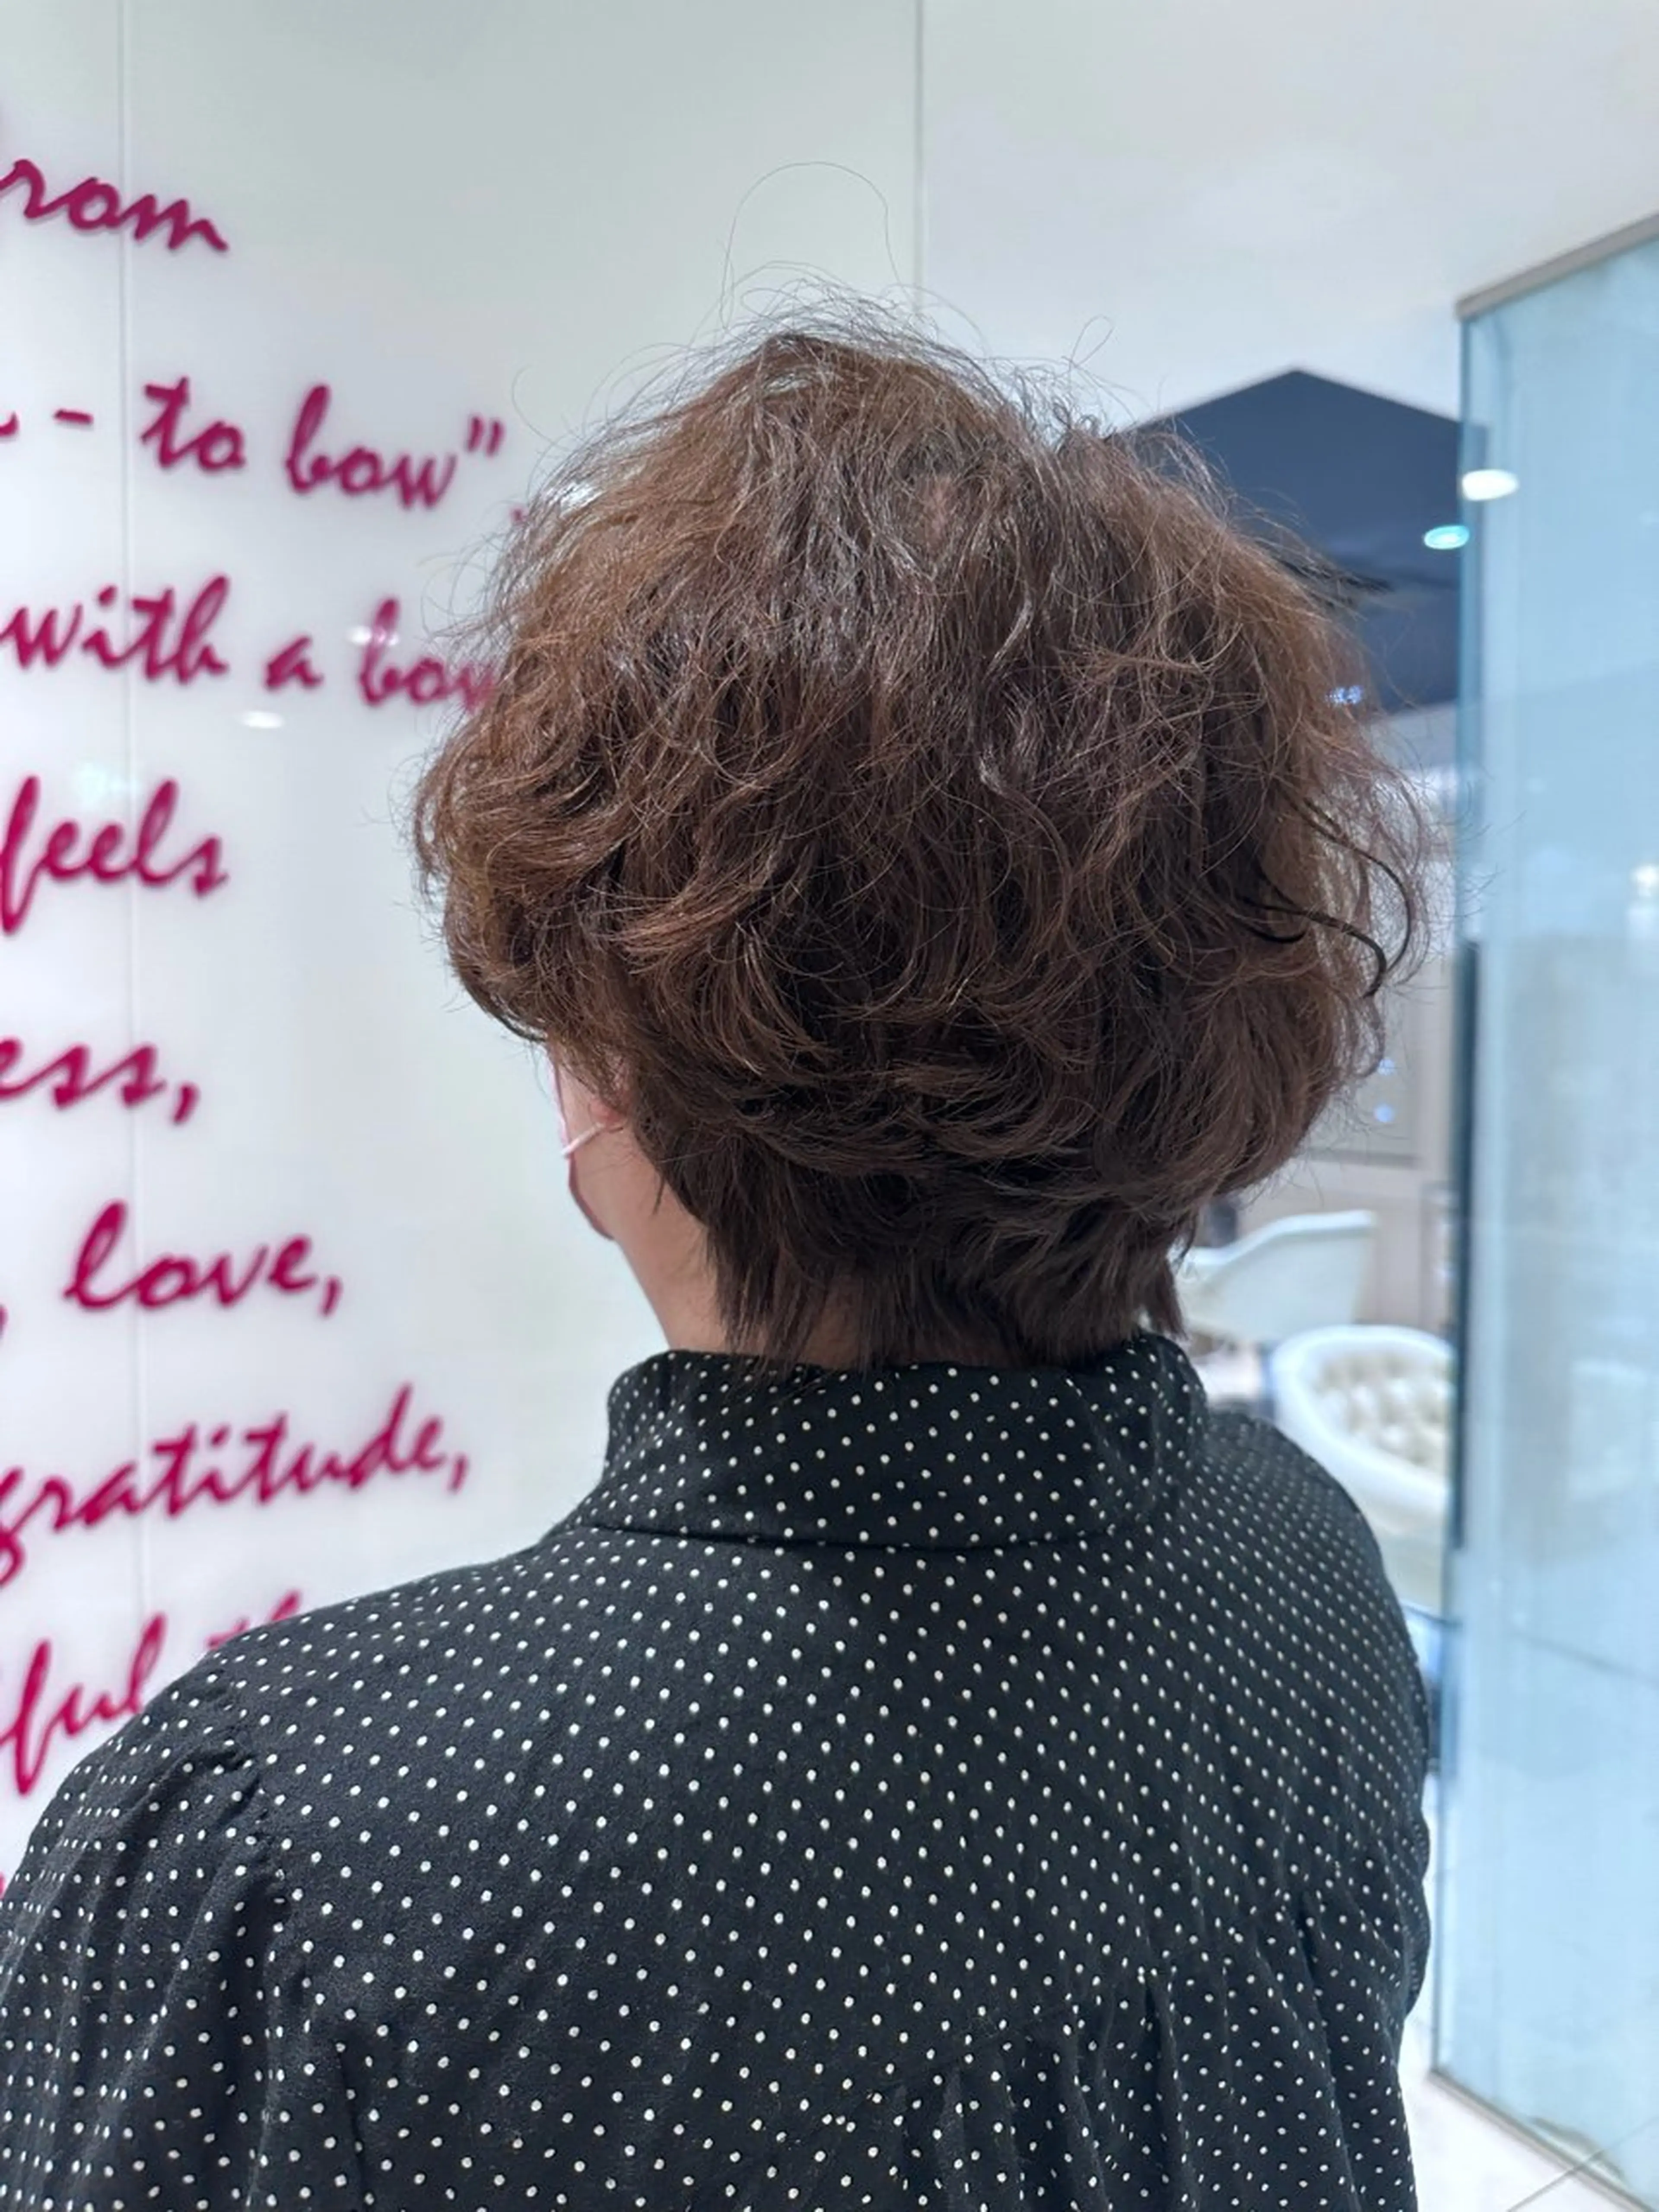 rom
- to bow".
with a bow
feels
ess,
love,
gratitude,
ful th